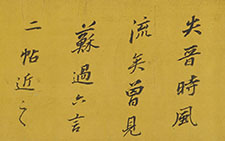 失晉時風
流矣曽見
蘇過六言
二帖近之